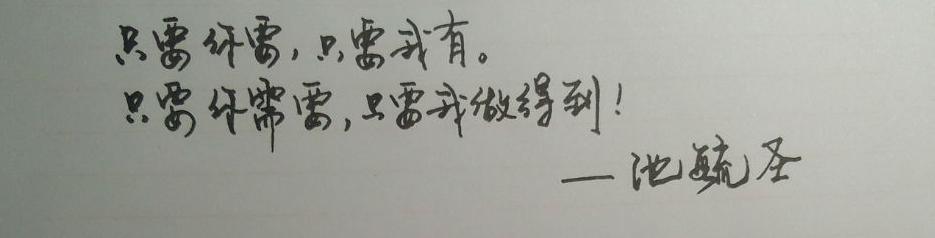 只要你要，只要我有。
只要你需要，只要我做得到！
— 池毓圣